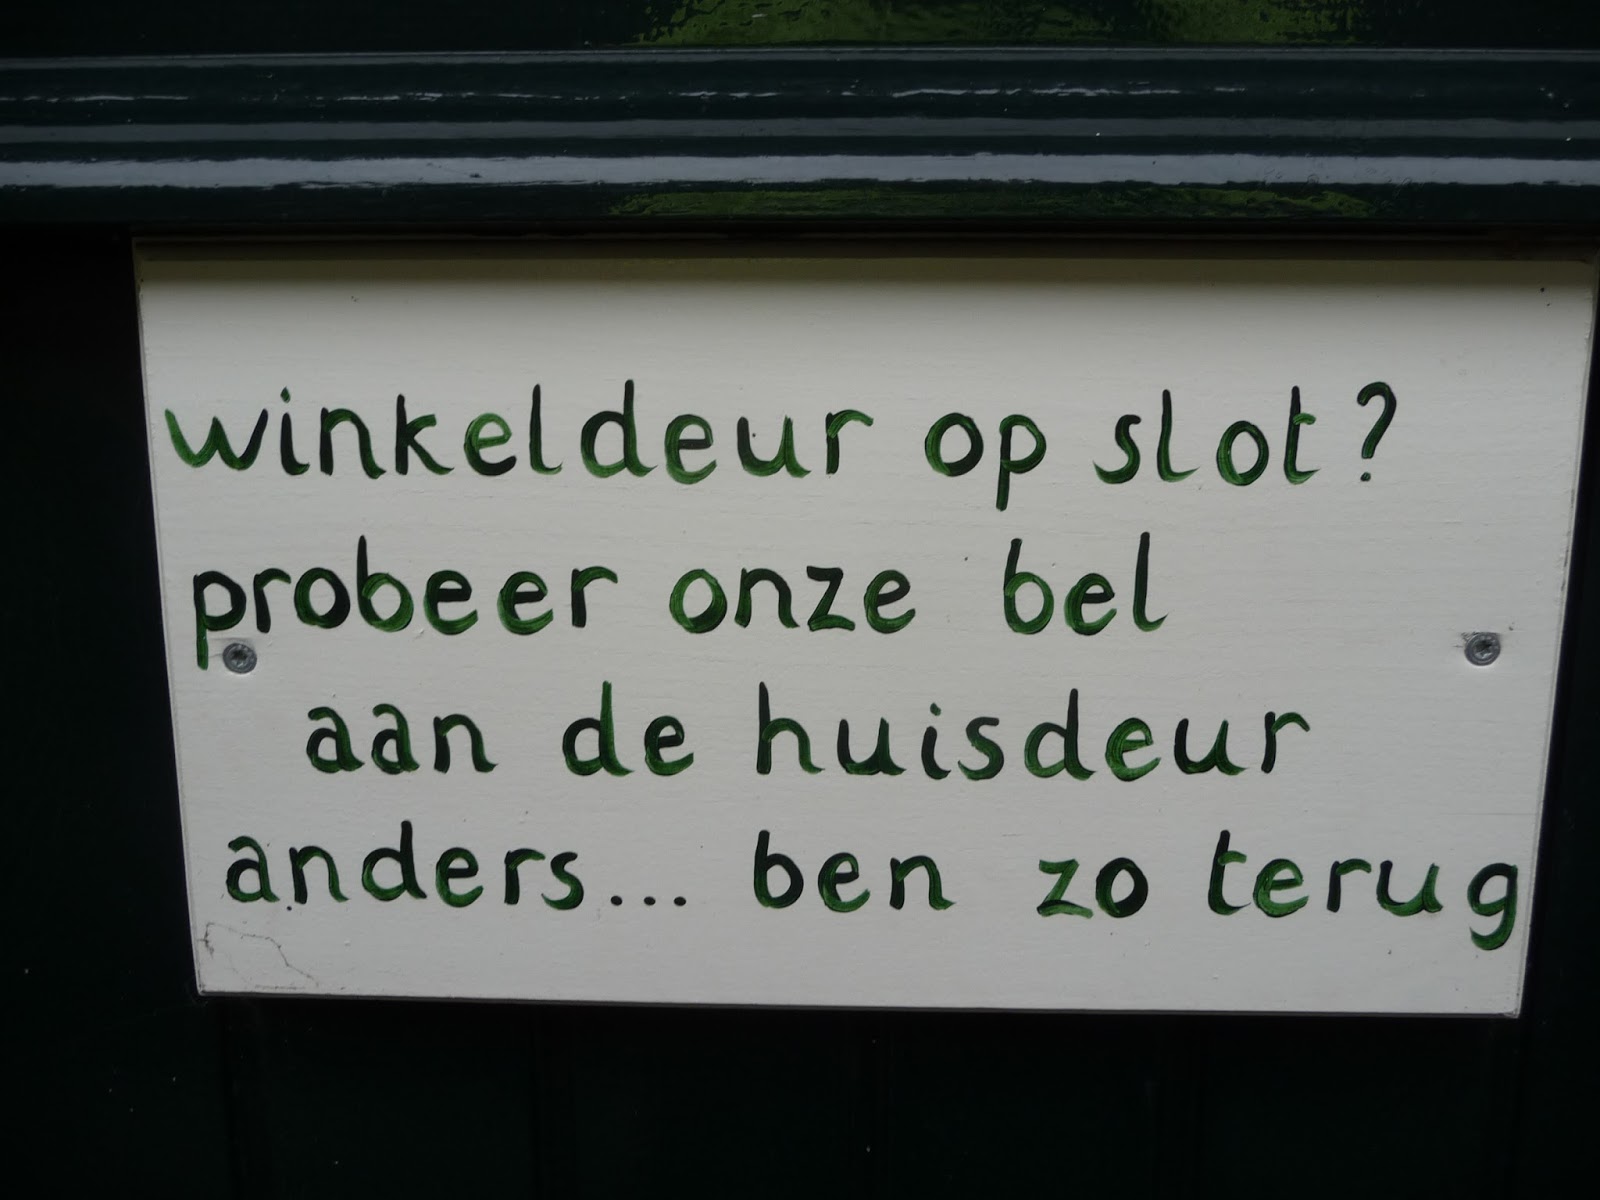 winkeldeur op slot?
probeer onze bel
aan de huisdeur
anders... ben zo terug